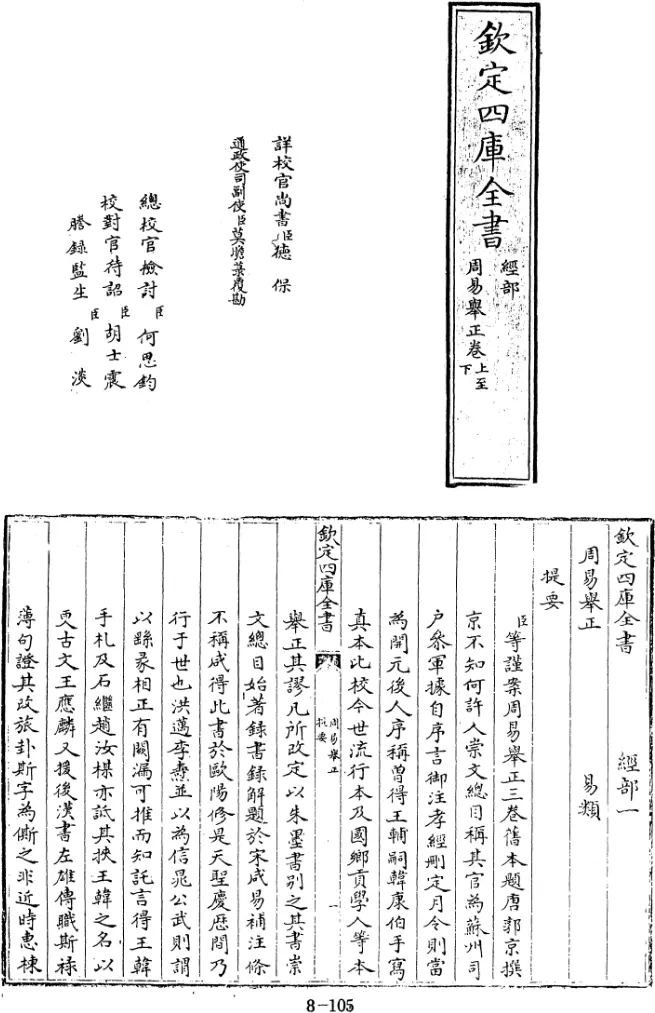 欽定四庫全書
經部
周易舉正卷上至
下
詳校官尚書臣德保
通政使司副使臣莫瞻菉覆勘
總校官檢討臣何思鈞
校對官待詔臣胡士震
謄錄監生臣劉淡
欽定四庫全書 經部一
周易舉正 易類
提要
臣等謹案周易舉正三巻舊本題唐郭京撰
京不知何許人崇文總目稱其官為蘇州司
户參軍據自序言御注孝經刪定月令則當
為開元後人序稱曽得王輔嗣韓康伯手寫
真本比校今世流行本及國鄉貢學人等本
欽定四庫全書
周易舉正
提要
一
舉正其謬凡所改定以朱墨書别之其書崇
文總目始著録書録解題於宋咸易補注條
不稱咸得此書於歐陽修是天聖慶厯間乃
行于世也洪邁李燾並以為信晁公武則謂
以繇彖相正有闕漏可推而知託言得王韓
手札及石繼趙汝楳亦詆其挾王韓之名以
更古文王應麟又援後漢書左雄傳職斯禄
薄句證其改旅卦斯字為㒋之非近時惠棟
8-105